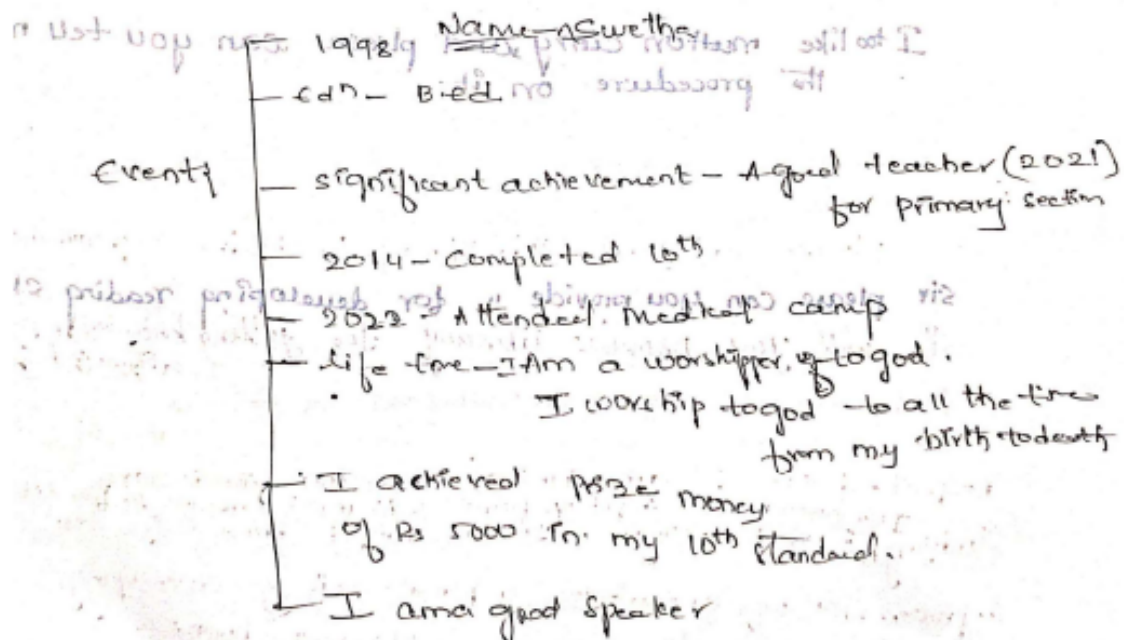 Name - Swetha
1998
Edn - B.ed
Events
significant achievement - A good teacher (2021)
for primary section
2014 - Completed 10th
2022 - Attended Medical camp
life time - I Am a worshipper of to god.
I worship to god to all the time
from my birth to death
I achieved prize money
of Rs 5000 in my 10th standard.
I am a good speaker